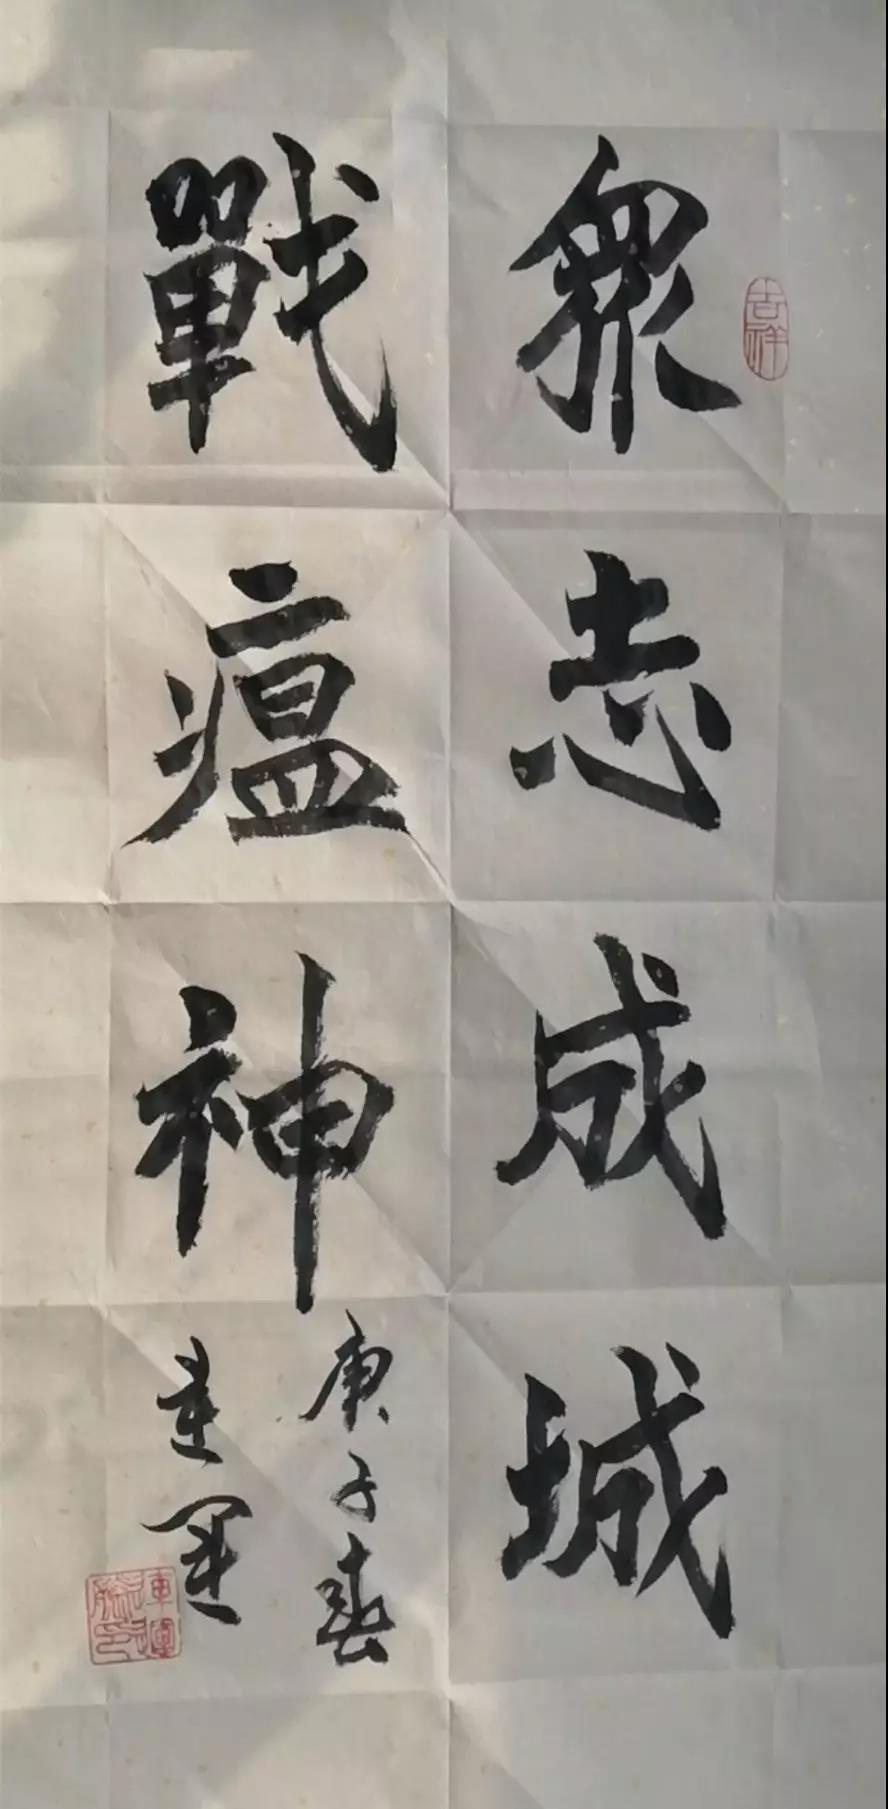 眾志成城
戰瘟神
庚子春
吉祥